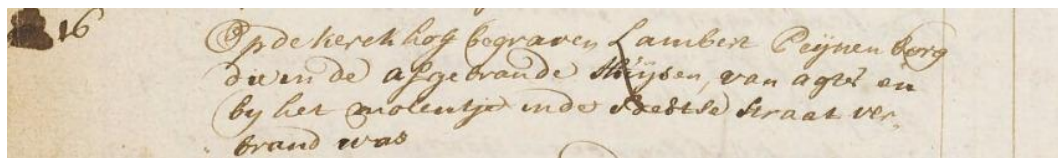 16 Op de kerck hof begraven Lambert Peijnenborg
die in de afgebrande Huijsen, van agter en
by het molentje inde Soedtse straat ver
brand was